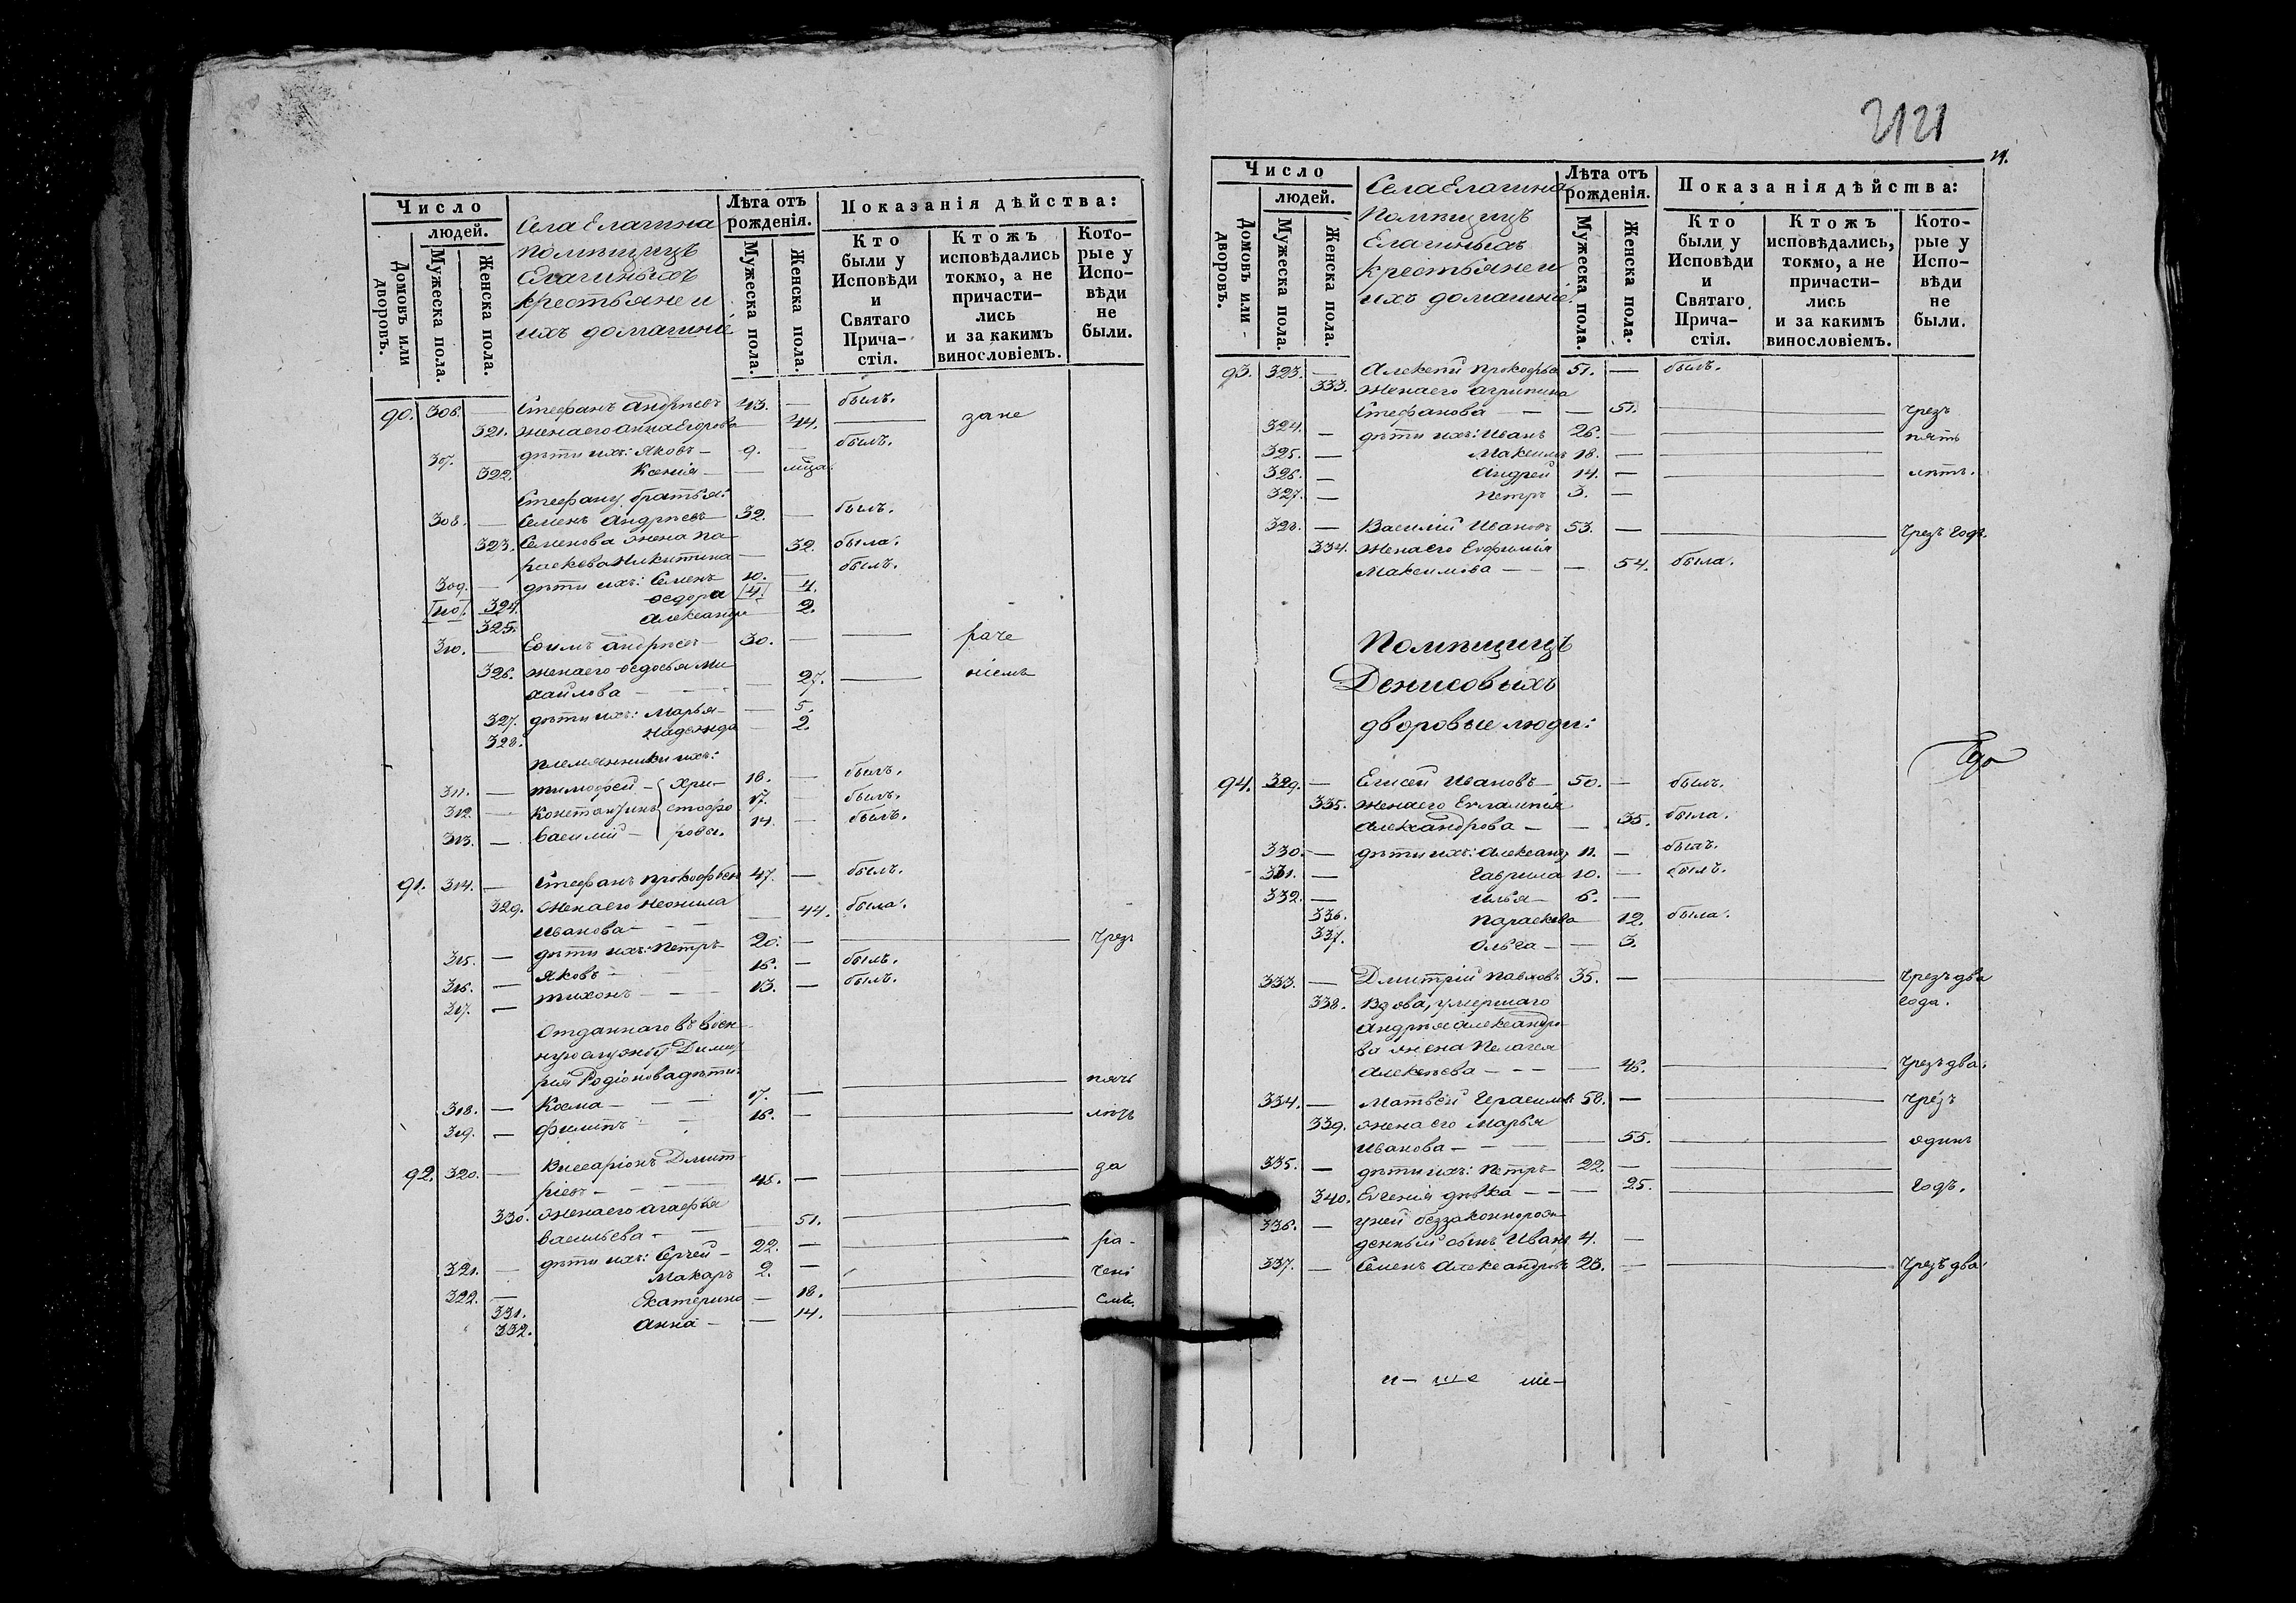 Число
людей.
Домовъ или дворовъ.
Мужеска пола.
Женска пола.
Села Елагина
помѣщицъ
Елагиныхъ
крестьяне и
ихъ домашніе
Лѣта отъ рожденія.
Мужеска пола.
Женска пола.
Показанія дѣйства:
Кто были у Исповѣди и Святаго Прича-стія.
Ктожъ исповѣдались токмо, а не причасти-лись и за какимъ винословіемъ.
Кото-рые у Испо-вѣди не были.
90. 306. — Стефанъ Андреевъ 43. — былъ.
321. Жена его Анна Егорова — 44. — зане
307. — дѣти ихъ: Яковъ — 9. — былъ.
322. Ксенія — — мѣца.
Стефану братья:
308. — Семенъ Андреевъ — 32. — былъ.
323. Семенова жена Па-
раскева Никитина — 32. была.
309. — дѣти ихъ: Семенъ 10. — былъ.
324. Ѳедора 4.
325. Александра 2.
310. — Ефимъ Андреевъ — 30. — — раче
326. жена его Ѳедосья Ми-
хайлова — — — 27. — ніемъ
327. дѣти ихъ: Марья — — 5.
328. Надежда — 2.
племянники ихъ:
311. — Тимофей — Хри- 18. — былъ.
312. — Константинъ стофо 17. — былъ.
313. — Василій — ровы. 14. — былъ.
91. 314. — Стефанъ Прокофьев 47. — былъ.
329. Жена его Неонила
Иванова — — — 44. была.
315. — дѣти ихъ: Петръ 20. — — чрезъ
316. — Яковъ — — 16. — былъ.
317. — Тихонъ — — 13. — былъ.
Отданнаго въ воен-
ную службу Димит
рія Родіонова дѣти:
318. — Косма — — 17. — — пять
319. — Филипъ — 16. — — лѣтъ
92. 320. — Виссаріонъ Дмит-
ріевъ — — — 45. — — да
330. Жена его Агафья
Васильева — — 51. —
321. — дѣти ихъ: Сергей — 22. — — ра-
322. — Макаръ 2. — чені
331. Екатерина — 18. — емъ.
332. Анна — — 14. —
2121
21.
Число
людей.
Домовъ или дворовъ.
Мужеска пола.
Женска пола.
Села Елагина
Помѣщицъ
Елагиныхъ
крестьяне и
ихъ домашніе.
Лѣта отъ рожденія.
Мужеска пола.
Женска пола.
Показанія дѣйства:
Кто были у Исповѣди и Святаго Прича-стія.
Ктожъ исповѣдались, токмо, а не причасти-лись и за какимъ винословіемъ.
Кото-рые у Испо-вѣди не были.
93. 323. — Алексѣй Прокофье 51. — былъ.
333. Жена его Агрипина
Стефанова — — — 51. — чрезъ
324. — дѣти ихъ: Иванъ 26. — — пять
325. — Максимъ 18. — —
326. — Андрей 14. — — лѣтъ.
327. — Петръ 3. —
328. — Василій Ивановъ 53. — — Чрезъ годъ.
334. Жена его Евфимія
Максимова — — — 54. была.
Помѣщицъ
Денисовыхъ
дворовые люди:
94. 329. — Елисей Ивановъ — 50. — былъ.
335. Жена его Евлампія
Александрова — — 35. была.
330. — дѣти ихъ: Александ 11. — былъ.
331. — Гаврила 10. — былъ.
332. — Илья — 6. —
336. Параскева — 12. была.
337. Ольга — — 3.
333. — Дмитрій Павловъ 35. — — Чрезъ два
338. Вдова, умершаго года.
Андрея Александро-
ва жена Пелагея
Алексѣева — — — — 46. — Чрезъ два.
334. — Матвѣй Герасимов 58. — — чрезъ
339. Жена его Марья
Иванова — — — 55. — одинъ
335. — дѣти ихъ: Петръ — 22. —
340. Евгенія дѣвка — — — 25. — годъ.
336. — у ней беззаконнорож-
денный сынъ Иванъ 4. —
337. — Семенъ Александровъ 23. — — Чрезъ два.